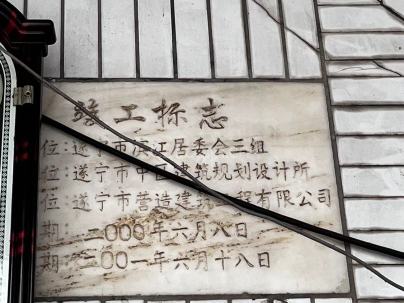 竣工标志
位：遂宁市滨江居委会三组
位：遂宁市中区建筑规划设计所
位：遂宁市营造建筑工程有限公司
期：二〇〇〇年六月八日
期：二〇〇一年六月十八日